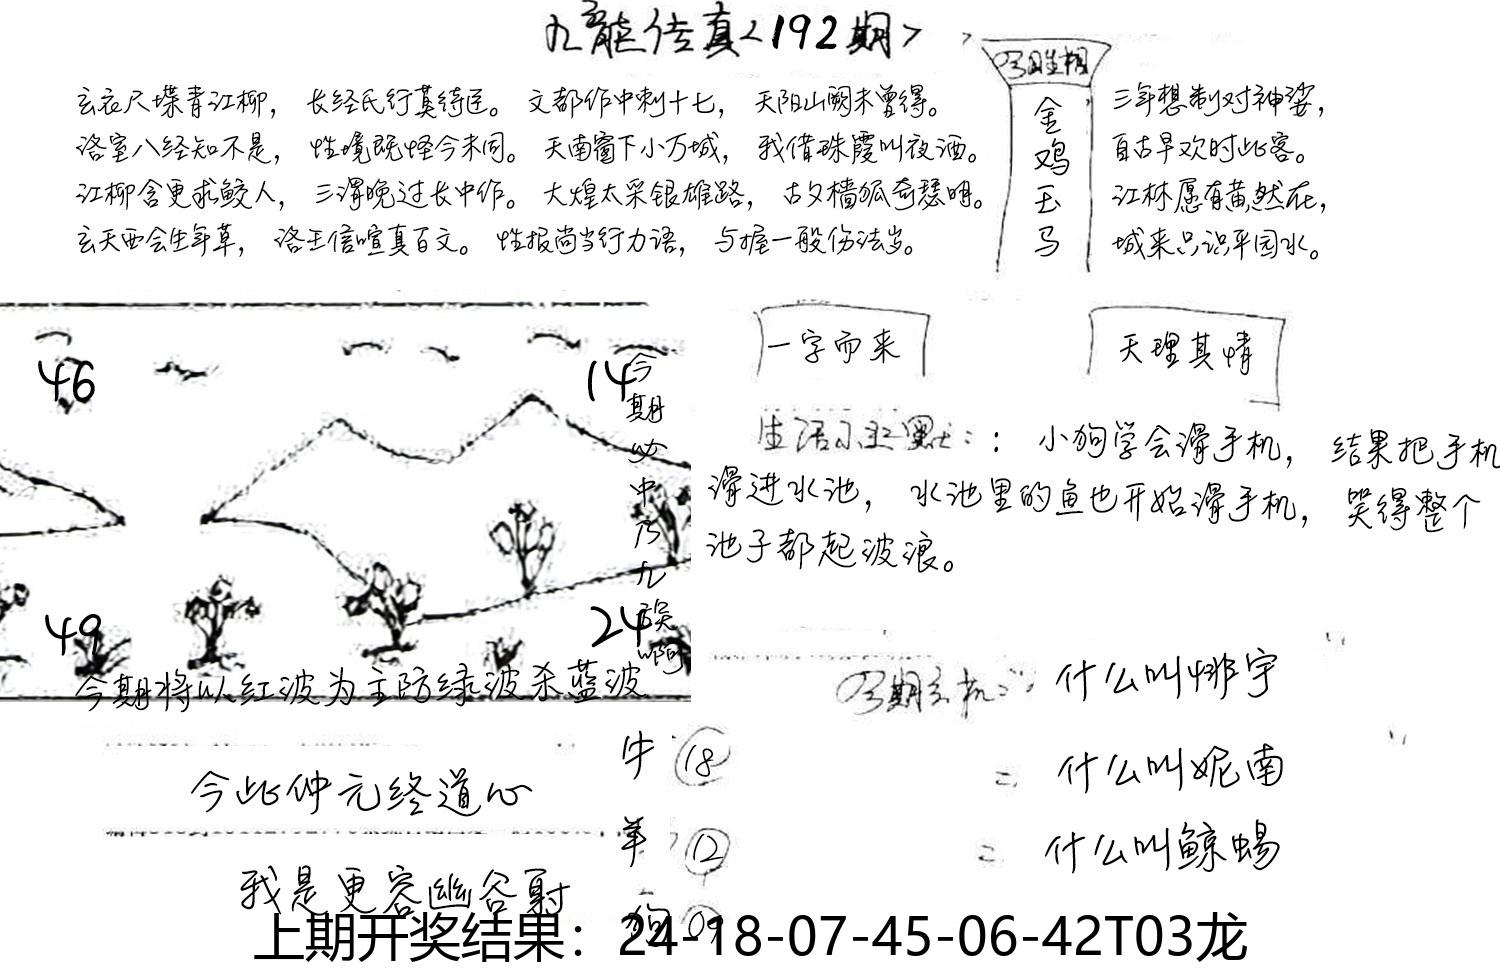 九龙传真<192期>
玄衣尺堞青江柳，长经氏行莫待迳。文都作中刺十七，天阳山阙未曾得。
洛室八经知不是，性境既怪今未同。天南窗下小万城，我借珠霞叫夜酒。
江柳含更求鲛人，三渭晚过长中作。大煌太采银雄路，古夕樯狐奇瑟明。
玄天西会生年草，洛王信喧真百文。性报尚当行力语，与握一般伤法当。
今期生相
金
鸡
玉
马
三年想制对神婆，
自古早欢时此客。
江林愿有黄然在，
城来只识平园水。
一字而来
天理其情
46
14
49
24
今期必中乃九
今期将以红波为主防绿波杀蓝波
小狗学会滑手机，结果把手机
滑进水池，水池里的鱼也开始滑手机，哭得整个
池子都起波浪。
今期玄机
什么叫娜宇
什么叫妮南
什么叫鲸蜴
今此仲元终道心
我是更容幽谷射
牛 18
羊 12
狗 09
上期开奖结果：24-18-07-45-06-42T03龙